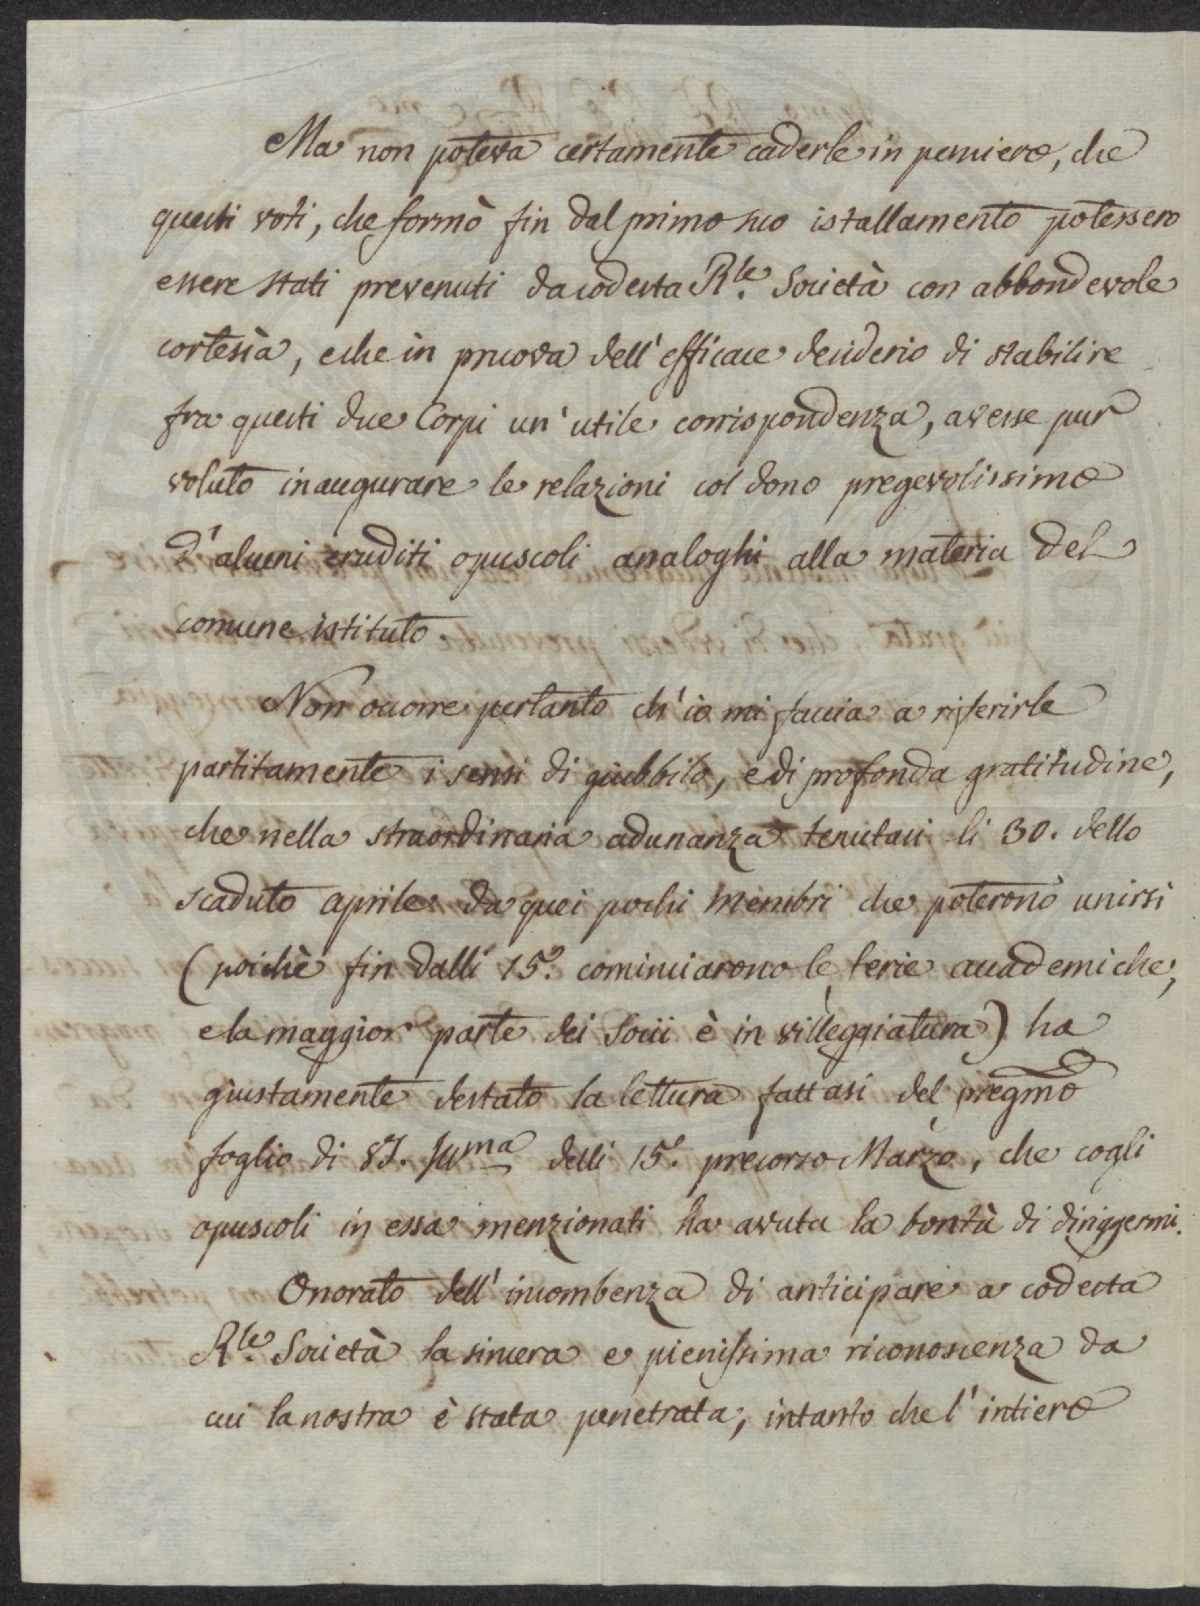 Ma non poteva certamente caderle in pensiero, che
questi voti, che formò fin dal primo suo istallamento potessero
essere stati prevenuti da codesta R.le Società con abbondevole
cortesìa, e che in pruova dell'efficace desiderio di stabilire
fra questi due Corpi un'utile corrispondenza, avesse pur
voluto inaugurare le relazioni col dono pregevolissimo
d'alcuni eruditi opuscoli analoghi alla materia del
comune istituto.
Non occorre pertanto ch'io mi faccia a riferirle
partitamente i sensi di giubbilo, e di profonda gratitudine,
che nella straordinaria adunanza tenutasi li 30. dello
scaduto aprile da quei pochi membri che poterono unirsi
(poichè fin dalli 15. cominciarono le ferie accademiche,
e la maggior parte dei Socii è in villeggiatura) ha
giustamente destato la lettura fattasi del pregmo
foglio di VS. Illma delli 15. precorso Marzo, che cogli
opuscoli in essa menzionati ha avuta la bontà di diriggermi.
Onorato dell'incombenza di anticipare a codesta
R.le Società la sincera e pienissima riconoscenza da
cui la nostra è stata penetrata, intanto che l'intiero